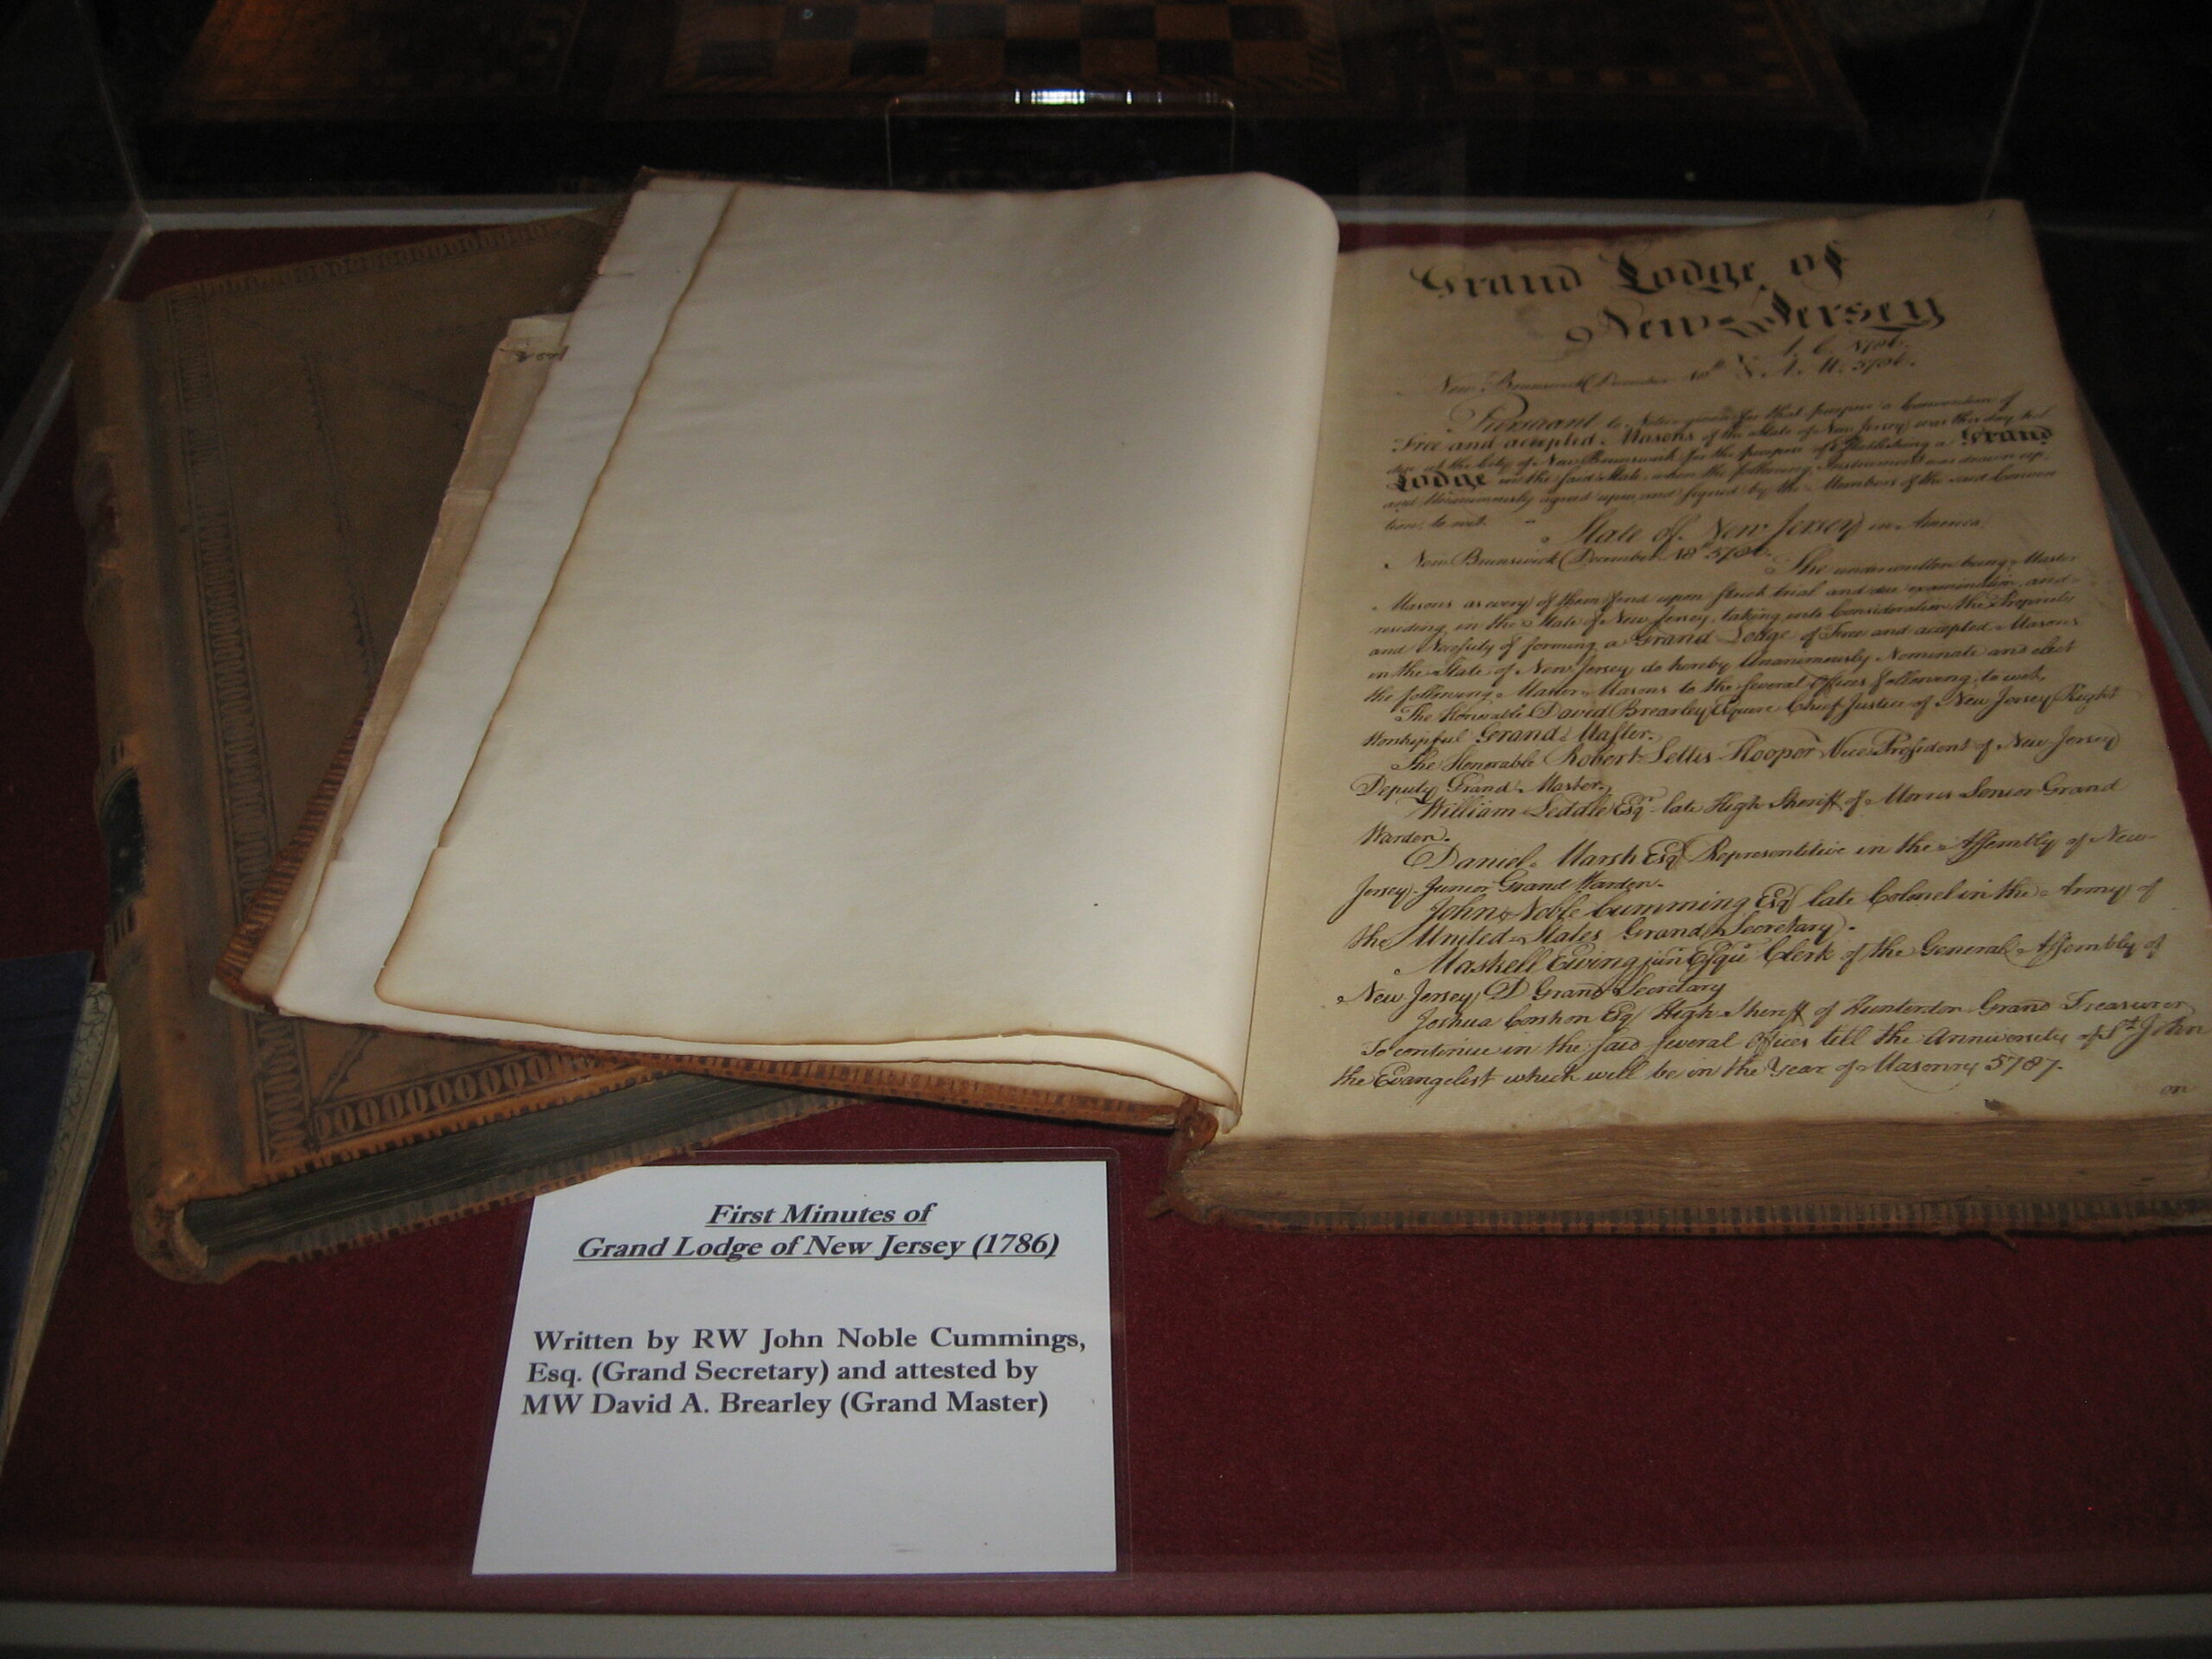 Grand Lodge of
New-Jersey
A. L. 5786.
New Brunswick December 18th & A. M. 5786.
Pursuant to Notice given for that purpose a Convention of
Free and accepted Masons of the State of New Jersey was this day
at the City of New Brunswick for the purpose of Establishing a Grand
Lodge in the said State, when the following Instrument was drawn up
and Unanimously agreed upon and signed by the Members of the said Conven
tion, to wit.
State of New Jersey in America.
New Brunswick December 18th 5786.
The underwritten being Master
Masons as every of them find upon strict trial and due examination, and
residing in the State of New Jersey, taking into Consideration the Propriety
and Necessity of forming a Grand Lodge of Free and accepted Masons
in the State of New Jersey do hereby Unanimously Nominate and elect
the following Master Masons to the several Offices following, to wit,
The Honorable David Brearley Esquire Chief Justice of New Jersey Right
Worshipful Grand Master.
The Honorable Robert Lettis Hooper Vice President of New Jersey
Deputy Grand Master.
William Leddle Esqr. late High Sheriff of Morris Senior Grand
Warden.
Daniel Marsh Esq Representitive in the Assembly of New-
Jersey Junior Grand Warden.
John Noble Cumming Esq late Colonel in the Army of
the United States Grand Secretary.
Maskell Ewing jun Esqr Clerk of the General Assembly of
New Jersey, D Grand Secretary
Joshua Corshon Esq High Sheriff of Hunterdon Grand Treasurer
To continue in the said several Offices till the Anniversity of St John
the Evangelist which will be in the Year of Masonry 5787.
on
First Minutes of
Grand Lodge of New Jersey (1786)
Written by RW John Noble Cummings,
Esq. (Grand Secretary) and attested by
MW David A. Brearley (Grand Master)